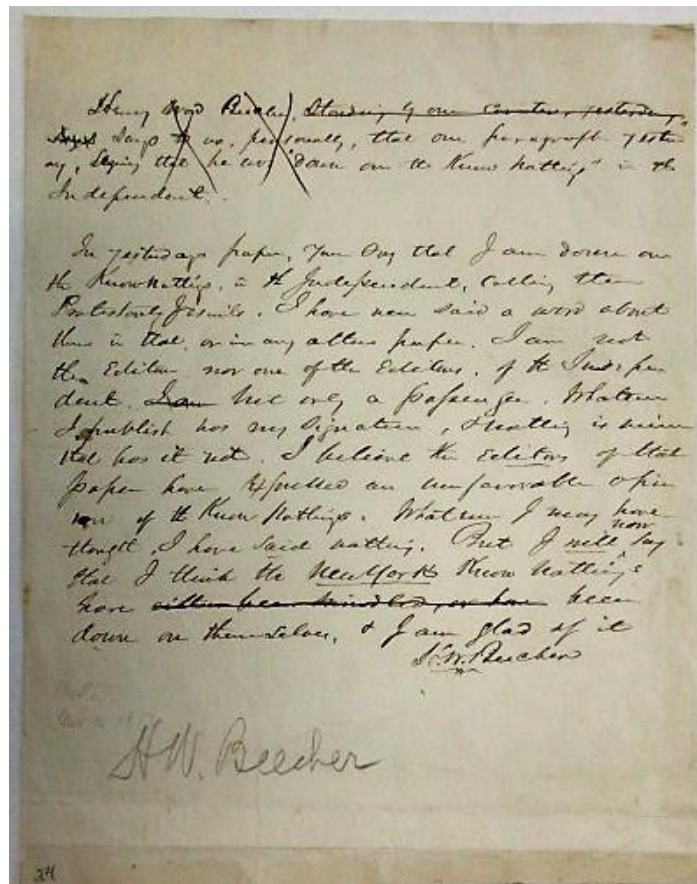 Henry Ward Beecher, Standing by our Counter, yesterday,
Says says to us, personally, that our paragraph yester
ay, Saying that he was "down on the Know Nothings" in the
Independent.
In yesterdays paper, You Say that I am down on
the Know Nothings, in the Independent, Calling them
Protestant Jesuits. I have never said a word about
them in that, or in any other paper. I am not
the Editor nor one of the Editors, of the Indepen
dent. I am but only a passenger. Whatever
I publish has my Signature, & nothing is mine
that has it not. I believe the editors of that
paper have Expressed an unfavorable opin
ion of the Know Nothings. Whatever I may have
thought, I have Said nothing. But I will now Say
that I think the New York Know Nothings
have either been or have been
down on themselves, & I am glad of it
H. W. Beecher
H W. Beecher
34